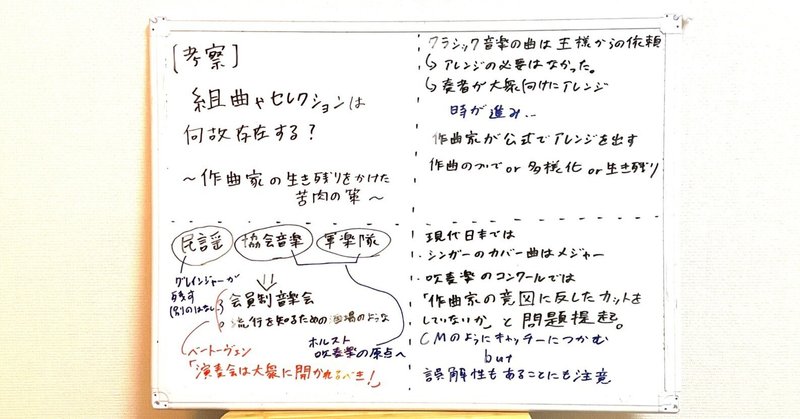 [考察]
組曲やセレクションは
何故存在する?
~作曲家の生き残りをかけた
苦肉の策~
クラシック音楽の曲は王様からの依頼
↳アレンジの必要はなかった。
↳奏者が大衆向けにアレンジ
時が進み..
作曲家が公式でアレンジを出す
作曲のツルで or 多様化 or 生き残り
民謡 協会音楽 軍楽隊
グレインジャーが
残す
(別のはなし)
会員制音楽会
流行を知るための酒場のような
ベートーヴェン
「演奏会は大衆に開かれるべき!」
ホルスト
吹奏楽の原点へ
現代日本では
・シンガーのカバー曲はメジャー
・吹奏楽のコンクールでは
「作曲家の意図に反したカットを
していないか」と問題提起。
CMのようにキャッチーにつかむ
but
誤解性もあることにも注意